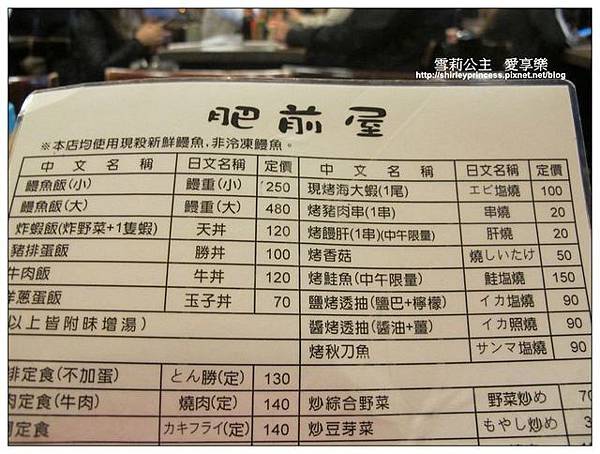 雪莉公主 愛享樂
http://shirleyprincess.pixnet.net/blog
肥前屋
※本店均使用現殺新鮮鰻魚,非冷凍鰻魚。
中文名稱 日文名稱 定價
鰻魚飯(小) 鰻重(小) 250
鰻魚飯(大) 鰻重(大) 480
炸蝦飯(炸野菜+1隻蝦) 天丼 120
豬排蛋飯 勝丼 100
牛肉飯 牛丼 120
洋蔥蛋飯 玉子丼 70
以上皆附味增湯)
排定食(不加蛋) とん勝(定) 130
肉定食(牛肉) 燒肉(定) 140
定食 カキフライ(定) 140
中文名稱 日文名稱 定價
現烤海大蝦(1尾) エビ塩燒 100
烤豬肉串(1串) 串燒 20
烤饅肝(1串)(中午限量) 肝燒 20
烤香菇 燒しいたけ 50
烤鮭魚(中午限量) 鮭塩燒 150
鹽烤透抽(鹽巴+檸檬) イカ塩燒 90
醬烤透抽(醬油+薑) イカ照燒 90
烤秋刀魚 サンマ塩燒 90
炒綜合野菜 野菜炒め
炒豆芽菜 もやし炒め